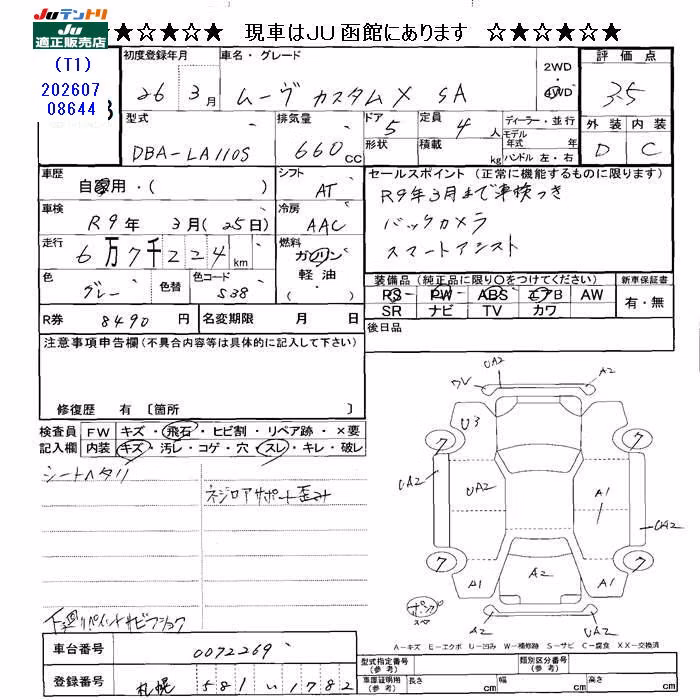 JUテントリ
JU
適正販売店
★☆★☆★ 現車はJU函館にあります ☆★☆★☆★
(T1)
202607
08644
初度登録年月
26 3月
車名・グレード
ムーヴ カスタムX SA
2WD
4WD
評価点
3.5
型式
DBA-LA110S
排気量
660 CC
ドア
5
形状
定員
4 人
積載
kg
ディーラー・並行
モデル
年式 年
ハンドル 左・右
外装 内装
D C
車歴
自家用・( )
シフト
AT
セールスポイント (正常に機能するものに限ります)
R9年3月まで車検つき
バックカメラ
スマートアシスト
車検
R9年 3月(25日)
冷房
AAC
走行
6万7千224km
燃料
ガソリン
軽油
( )
色
グレー
色替
色コード
S38
装備品 (純正品に限り〇をつけてください)
新車保証書
PS PW ABS エアB AW
SR ナビ TV カワ
有・無
R券 8490 円
名変期限 月 日
後日品
注意事項申告欄(不具合内容等は具体的に記入して下さい)
修復歴 有 〔箇所 〕
検査員
記入欄
FW キズ・飛石・ヒビ割・リペア跡・×要
内装 キズ・汚レ・コゲ・穴・スレ・キレ・破レ
シートヘタリ
ネジロアサポート歪み
UA2
ワレ
A2
U3
ワ
ワ
UA2
UA2
A1
UA2
ワ
ワ
A1
A2
A1
パンク
スペア
A2
UA2
A-キズ E-エクボ U-凹み W-補修跡 S-サビ C-腐食 XX-交換済
車台番号
0072269
登録番号
札幌 581 い 1782
型式指定番号
(参考)
類別区分番号
(参考)
車庫証明用
(参考)
長さ cm
幅 cm
高さ cm